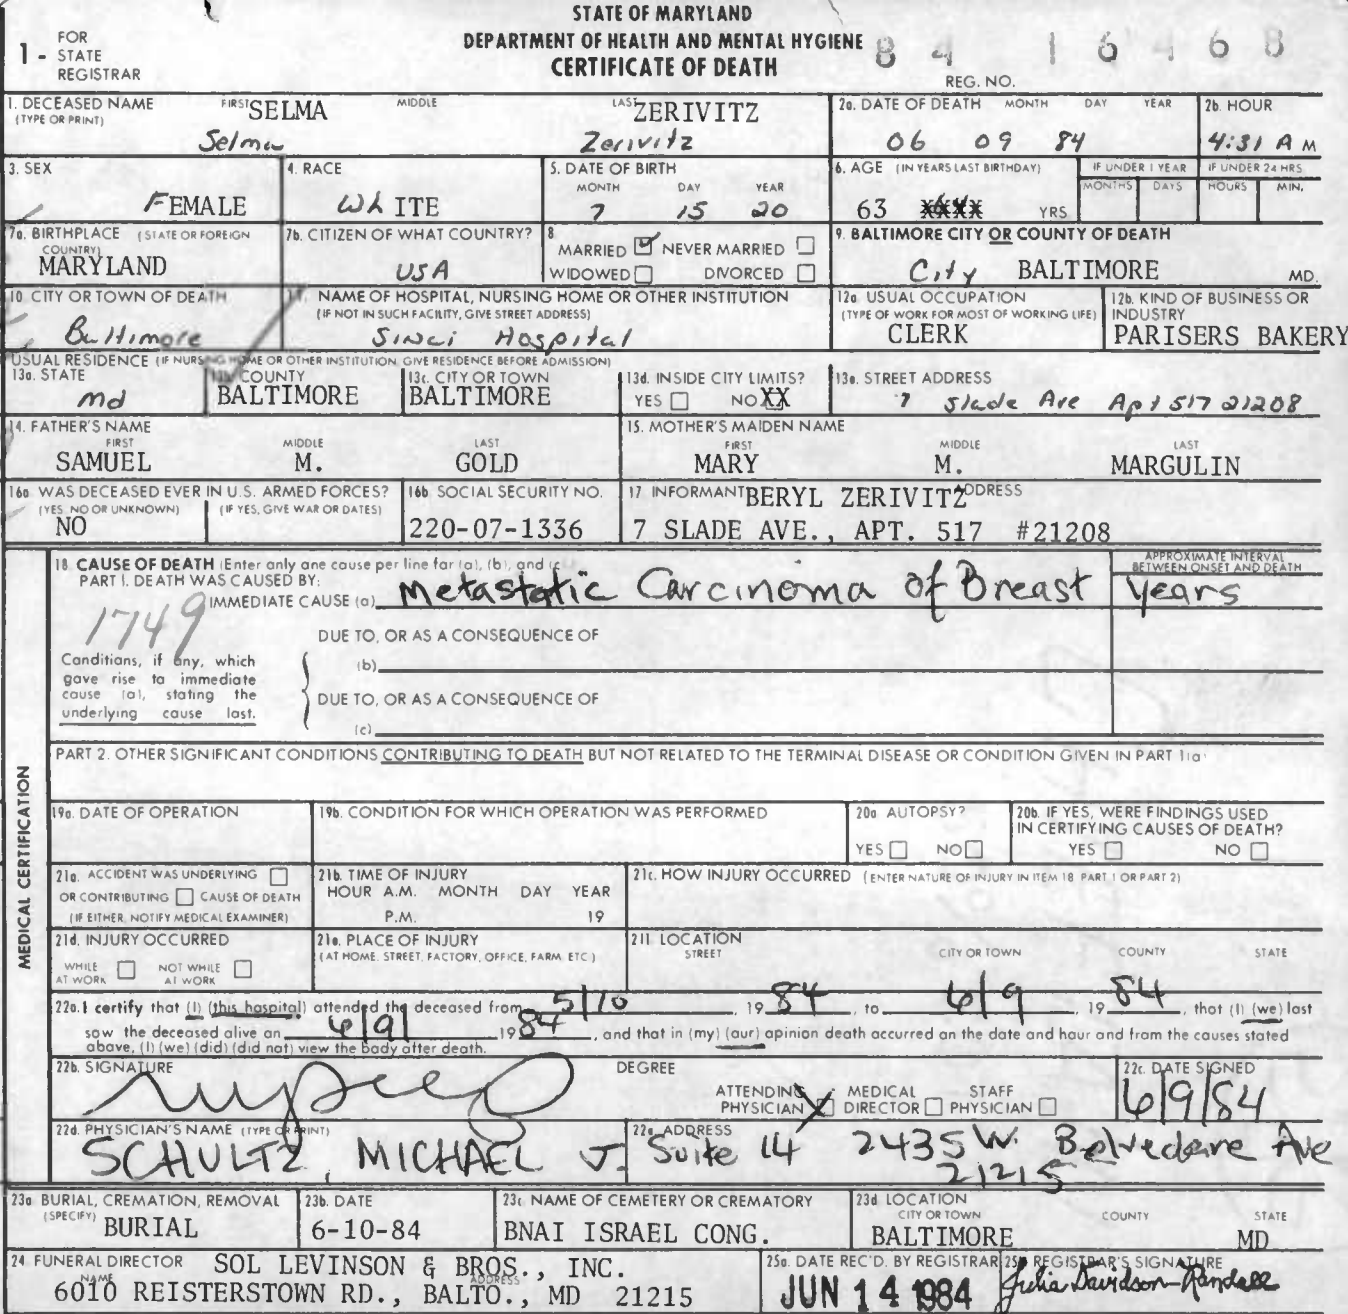 STATE OF MARYLAND
DEPARTMENT OF HEALTH AND MENTAL HYGIENE
CERTIFICATE OF DEATH
1 - FOR STATE REGISTRAR
84 16468
REG. NO.
1. DECEASED NAME (TYPE OR PRINT) FIRST SELMA MIDDLE LAST ZERIVITZ
Selma Zerivitz
2a. DATE OF DEATH MONTH DAY YEAR
06 09 84
2b. HOUR
4:31 A M
3. SEX
FEMALE
4. RACE
WhITE
5. DATE OF BIRTH
MONTH DAY YEAR
7 15 20
6. AGE (IN YEARS LAST BIRTHDAY)
63 XXXX YRS
IF UNDER 1 YEAR
MONTHS DAYS
IF UNDER 24 HRS
HOURS MIN.
7a. BIRTHPLACE (STATE OR FOREIGN COUNTRY)
MARYLAND
7b. CITIZEN OF WHAT COUNTRY?
USA
8
MARRIED ☑ NEVER MARRIED ☐
WIDOWED ☐ DIVORCED ☐
9. BALTIMORE CITY OR COUNTY OF DEATH
City BALTIMORE MD.
10. CITY OR TOWN OF DEATH
Baltimore
11. NAME OF HOSPITAL, NURSING HOME OR OTHER INSTITUTION
(IF NOT IN SUCH FACILITY, GIVE STREET ADDRESS)
Sinai Hospital
12a. USUAL OCCUPATION
(TYPE OF WORK FOR MOST OF WORKING LIFE)
CLERK
12b. KIND OF BUSINESS OR INDUSTRY
PARISERS BAKERY
USUAL RESIDENCE (IF NURSING HOME OR OTHER INSTITUTION, GIVE RESIDENCE BEFORE ADMISSION)
13a. STATE
Md
13b. COUNTY
BALTIMORE
13c. CITY OR TOWN
BALTIMORE
13d. INSIDE CITY LIMITS?
YES ☐ NO XX
13e. STREET ADDRESS
7 Slade Ave Apt 517 21208
14. FATHER'S NAME
FIRST MIDDLE LAST
SAMUEL M. GOLD
15. MOTHER'S MAIDEN NAME
FIRST MIDDLE LAST
MARY M. MARGULIN
16a. WAS DECEASED EVER IN U.S. ARMED FORCES?
(YES, NO OR UNKNOWN) (IF YES, GIVE WAR OR DATES)
NO
16b. SOCIAL SECURITY NO.
220-07-1336
17 INFORMANT BERYL ZERIVITZ ADDRESS
7 SLADE AVE., APT. 517 #21208
MEDICAL CERTIFICATION
18. CAUSE OF DEATH (Enter only one cause per line for (a), (b), and (c
PART I. DEATH WAS CAUSED BY:
IMMEDIATE CAUSE (a) Metastatic Carcinoma of Breast
APPROXIMATE INTERVAL BETWEEN ONSET AND DEATH
Years
1749
DUE TO, OR AS A CONSEQUENCE OF
(b)
Conditions, if any, which
gave rise to immediate
cause (a), stating the
underlying cause last.
DUE TO, OR AS A CONSEQUENCE OF
(c)
PART 2. OTHER SIGNIFICANT CONDITIONS CONTRIBUTING TO DEATH BUT NOT RELATED TO THE TERMINAL DISEASE OR CONDITION GIVEN IN PART 1(a)
19a. DATE OF OPERATION
19b. CONDITION FOR WHICH OPERATION WAS PERFORMED
20a. AUTOPSY?
YES ☐ NO ☐
20b. IF YES, WERE FINDINGS USED
IN CERTIFYING CAUSES OF DEATH?
YES ☐ NO ☐
21a. ACCIDENT WAS UNDERLYING ☐
OR CONTRIBUTING ☐ CAUSE OF DEATH
(IF EITHER, NOTIFY MEDICAL EXAMINER)
21b. TIME OF INJURY
HOUR A.M. MONTH DAY YEAR
P.M. 19
21c. HOW INJURY OCCURRED (ENTER NATURE OF INJURY IN ITEM 18 PART 1 OR PART 2)
21d. INJURY OCCURRED
WHILE AT WORK ☐ NOT WHILE AT WORK ☐
21e. PLACE OF INJURY
(AT HOME, STREET, FACTORY, OFFICE, FARM, ETC.)
21f. LOCATION
STREET CITY OR TOWN COUNTY STATE
22a. I certify that (I) (this hospital) attended the deceased from 5/10, 1984, to 6/9, 1984, that (I) (we) last
saw the deceased alive on 6/9/ 1984, and that in (my) (our) opinion death occurred on the date and hour and from the causes stated
above, (I) (we) (did) (did not) view the body after death.
22b. SIGNATURE
DEGREE
ATTENDING PHYSICIAN ☒ MEDICAL DIRECTOR ☐ STAFF PHYSICIAN ☐
22c. DATE SIGNED
6/9/84
22d. PHYSICIAN'S NAME (TYPE OR PRINT)
SCHULTZ, MICHAEL J.
22e. ADDRESS
Suite 14 2435 W. Belvedere Ave
21215
23a. BURIAL, CREMATION, REMOVAL (SPECIFY)
BURIAL
23b. DATE
6-10-84
23c. NAME OF CEMETERY OR CREMATORY
BNAI ISRAEL CONG.
23d. LOCATION
CITY OR TOWN COUNTY STATE
BALTIMORE MD
24. FUNERAL DIRECTOR SOL LEVINSON & BROS., INC.
NAME ADDRESS
6010 REISTERSTOWN RD., BALTO., MD 21215
25a. DATE REC'D. BY REGISTRAR
JUN 14 1984
25b. REGISTRAR'S SIGNATURE
Julia Davidson-Randall